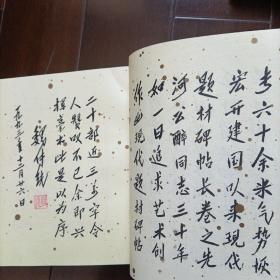 六十余米气势恢
宏开建国以来现代
题材碑帖长卷之先
河公醉同志三十年
如一日追求艺术创
作 现代题材碑帖
二十部近三万字令
人赞叹不已余即兴
挥毫书此是以为序
一九九三年十二月廿六日
魏传统